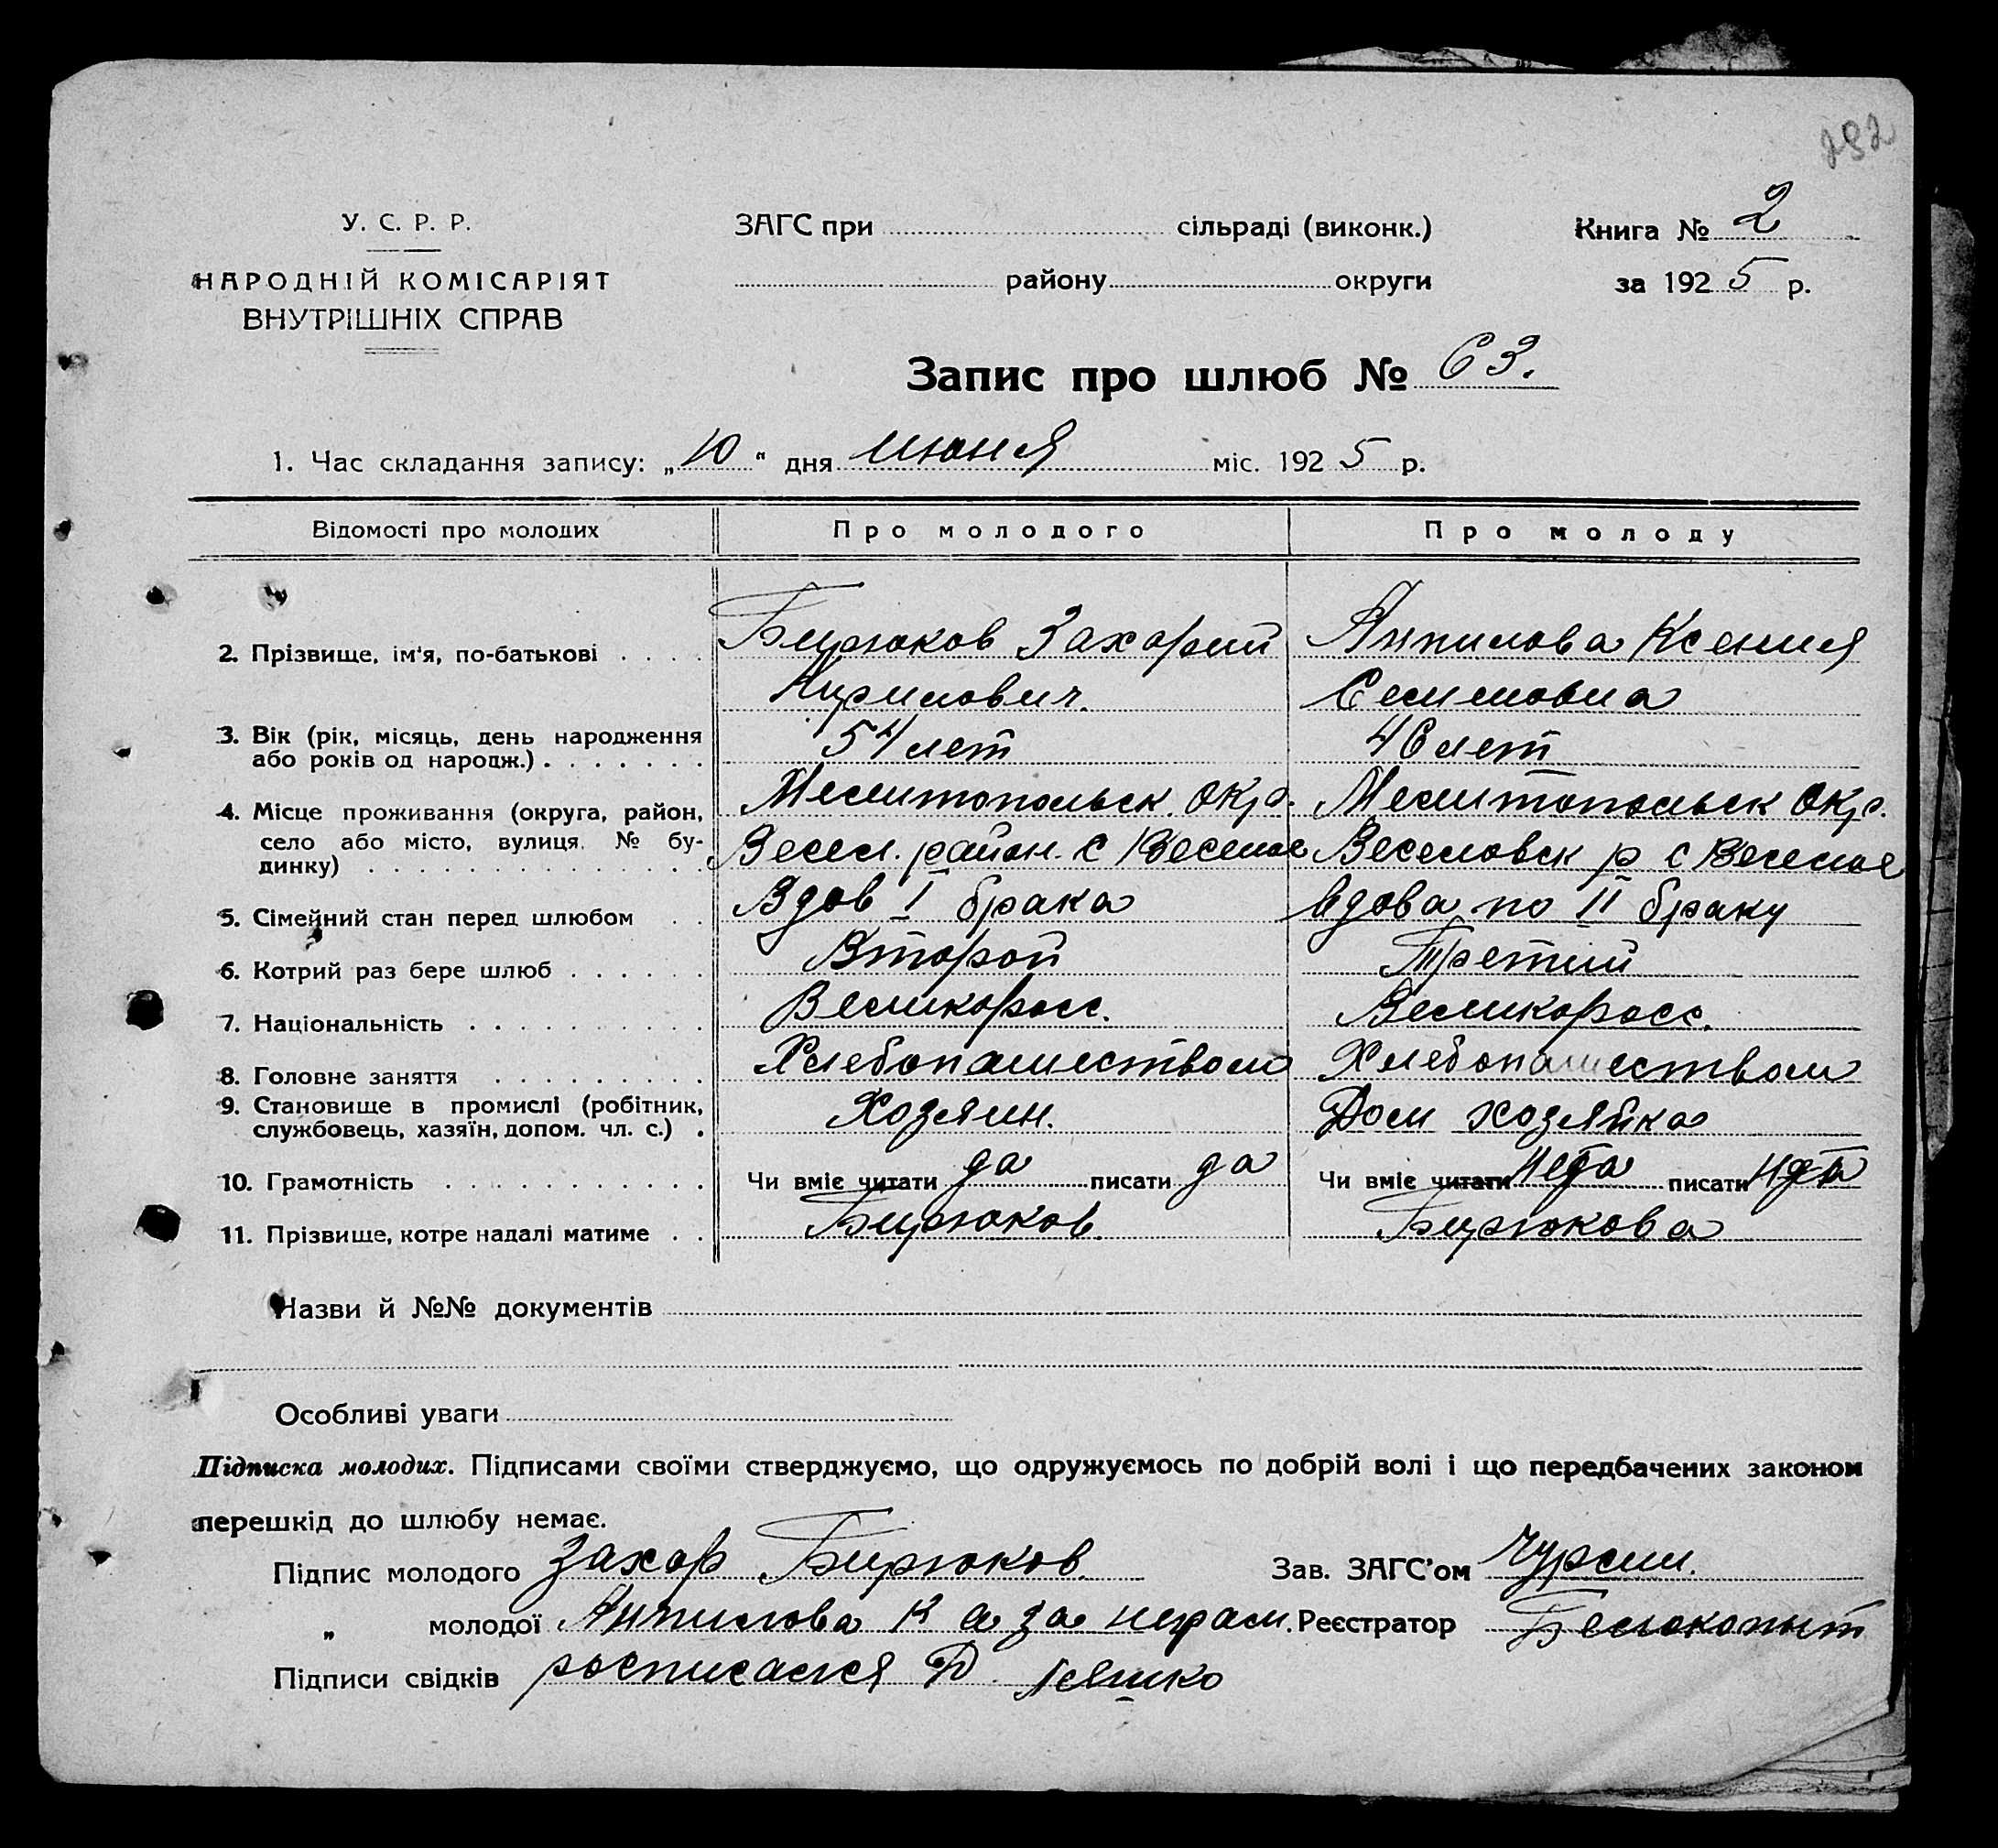 292
У. С. Р. Р.
НАРОДНІЙ КОМІСАРІЯТ
ВНУТРІШНІХ СПРАВ
ЗАГС при сільраді (виконк.)
району округи
Книга № 2
за 1925 р.
Запис про шлюб № 63.
1. Час складання запису: „10“ дня июня міс. 1925 р.
Відомості про молодих Про молодого Про молоду
2. Прізвище, ім'я, по-батькові Бирюков Захарий Анпилова Ксения
Кирилович. Семеновна
3. Вік (рік, місяць, день народження
або років од народж.) 54 лет 46 лет
4. Місце проживання (округа, район, Мелитопольск. Окр. Мелитопольск Окр.
село або місто, вулиця. № бу-
динку) Весел. район. с Веселое Веселовск р с Веселое
5. Сімейний стан перед шлюбом Вдов I брака вдова по II браку
6. Котрий раз бере шлюб Второй Третий
7. Національність Великоросс. Великоросс.
8. Головне заняття Хлебопашеством Хлебопашеством
9. Становище в промислі (робітник,
службовець, хазяїн, допом. чл. с.) Хозяин. Дом хозяйка
10. Грамотність Чи вміє читати да писати да Чи вміє читати писати
11. Прізвище, котре надалі матиме Бирюков. Бирюкова
Назви й №№ документів
Особливі уваги
Підписка молодих. Підписами своїми стверджуємо, що одружуємось по добрій волі і що передбачених законом
перешкід до шлюбу немає.
Підпис молодого Захар Бирюков. Зав. ЗАГС'ом Чурсин.
„ молодої Анпилова К а за неграм. Реєстратор Белокопыт
Підписи свідків росписался